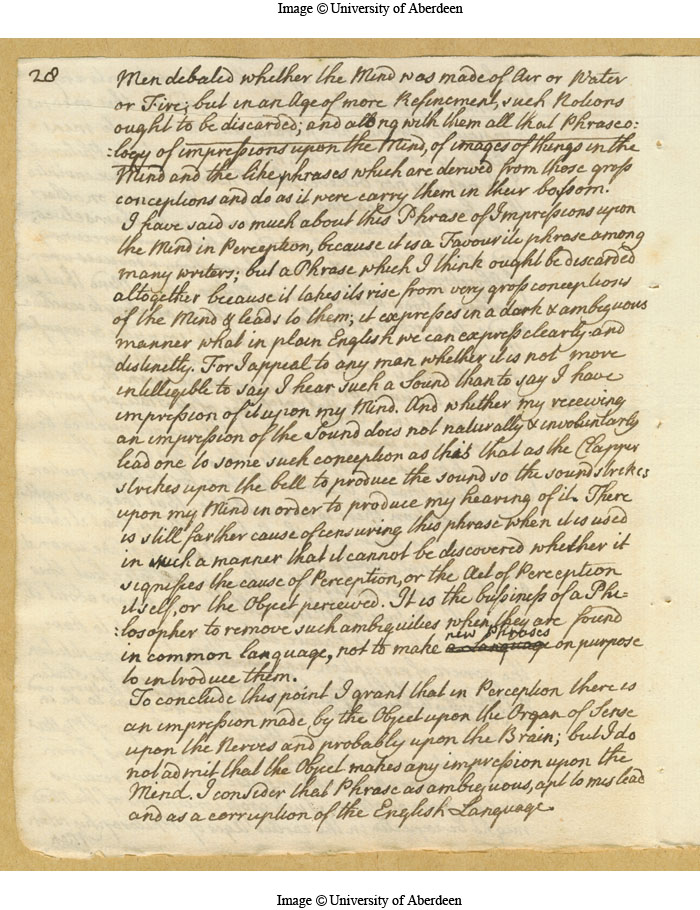 Image © University of Aberdeen
28
Men debated whether the Mind was made of Air or Water
or Fire; but in an Age of more Refinement, such Notions
ought to be discarded; and along with them all that Phraseo:
:logy of impressions upon the Mind, of images of things in the
Mind and the like phrases which are derived from those gross
conceptions and do as it were carry them in their bossom.
I have said so much about this Phrase of Impressions upon
the Mind in Perception, because it is a Favourite phrase among
many writers; but a Phrase which I think ought be discarded
altogether because it takes its rise from very gross conceptions
of the Mind & leads to them; it expresses in a dark & ambiguous
manner what in plain English we can express clearly and
distinctly. For I appeal to any man whether it is not more
intelligible to say I hear such a Sound than to say I have
impression of it upon my Mind. And whether my receiving
an impression of the Sound does not naturally & involuntarly
lead one to some such conception as this that as the Clapper
strikes upon the bell to produce the sound so the sound strikes
upon my Mind in order to produce my hearing of it. There
is still farther cause of censuring this phrase when it is used
in such a manner that it cannot be discovered whether it
signifies the cause of Perception, or the Act of Perception
itself, or the Object perceived. It is the bussiness of a Phi=
:losopher to remove such ambiguities when they are found
in common language, not to make new Phrases on purpose
to introduce them.
To conclude this point I grant that in Perception there is
an impression made by the Object upon the Organ of Sense
upon the Nerves and probably upon the Brain; but I do
not admit that the Object makes any impression upon the
Mind. I consider that Phrase as ambiguous, apt to mislead
and as a corruption of the English Language.
Image © University of Aberdeen